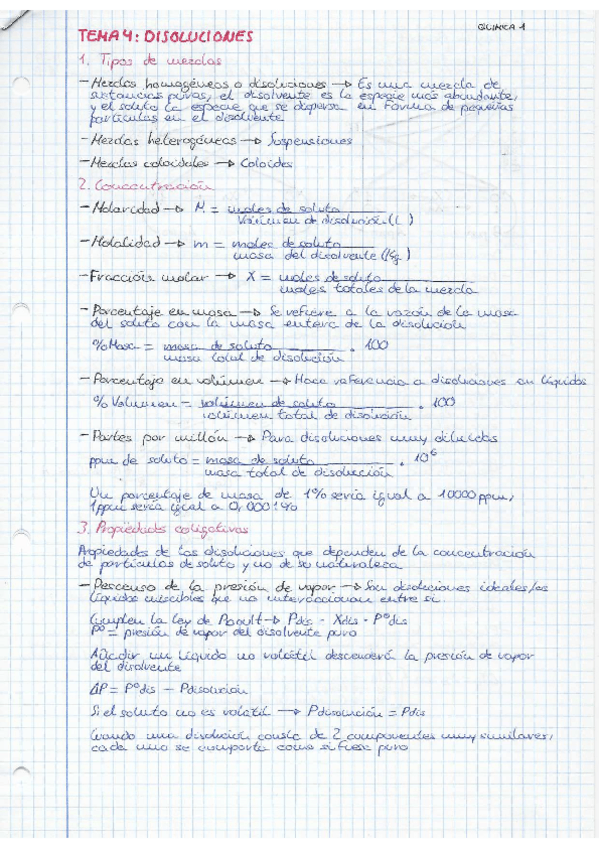 QUÍMICA 1
TEMA 4: DISOLUCIONES
1. Tipos de mezclas
- Mezclas homogéneas o disoluciones → Es una mezcla de
sustancias puras, el disolvente es la especie más abundante,
y el soluto la especie que se dispersa en forma de pequeñas
partículas en el disolvente
- Mezclas heterogéneas → Suspensiones
- Mezclas coloidales → Coloides
2. Concentración
- Molaridad → M = moles de soluto / Volumen de disolución (L)
- Molalidad → m = moles de soluto / masa del disolvente (Kg)
- Fracción molar → X = moles de soluto / moles totales de la mezcla
- Porcentaje en masa → Se refiere a la razón de la masa
del soluto con la masa entera de la disolución
% Masa = masa de soluto / masa total de disolución · 100
- Porcentaje en volumen → Hace referencia a disoluciones en líquidos
% Volumen = volumen de soluto / volumen total de disolución · 100
- Partes por millón → Para disoluciones muy diluidas
ppm de soluto = masa de soluto / masa total de disolución · 10⁶
Un porcentaje de masa de 1% sería igual a 10000 ppm,
1 ppm sería igual a 0,0001%
3. Propiedades coligativas
Propiedades de las disoluciones que dependen de la concentración
de partículas de soluto y no de su naturaleza
- Descenso de la presión de vapor → Son disoluciones ideales, los
líquidos miscibles que no interaccionan entre sí.
Cumplen la ley de Raoult → Pdis = Xdis · P°dis
P° = presión de vapor del disolvente puro
Añadir un líquido no volátil descenderá la presión de vapor
del disolvente
ΔP = P°dis - Pdisolución
Si el soluto no es volátil → Pdisolución = Pdis
Cuando una disolución consta de 2 componentes muy similares,
cada uno se comporta como si fuese puro